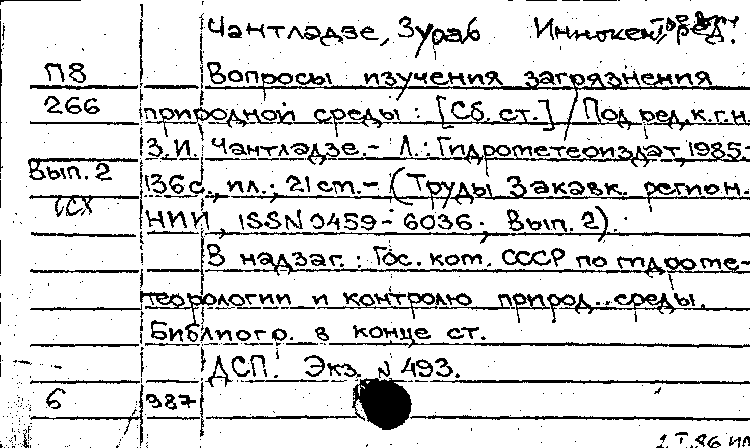 Чантладзе, Зураб Иннокентьевич, ред.
П8 Вопросы изучения загрязнения
266 природной среды : [Сб. ст.] / Под ред. к.г.н.
З.И. Чантладзе. - Л.: Гидрометеоиздат, 1985.-
Вып. 2 136 с., ил.; 21 ст. - (Труды Закавк. регион.
НИИ, ISSN 0459-6036; Вып. 2).
В надзаг.: Гос. ком. СССР по гидроме-
теорологии и контролю природ. среды.
Библиогр. в конце ст.
ДСП. Экз. N 493.
6 987